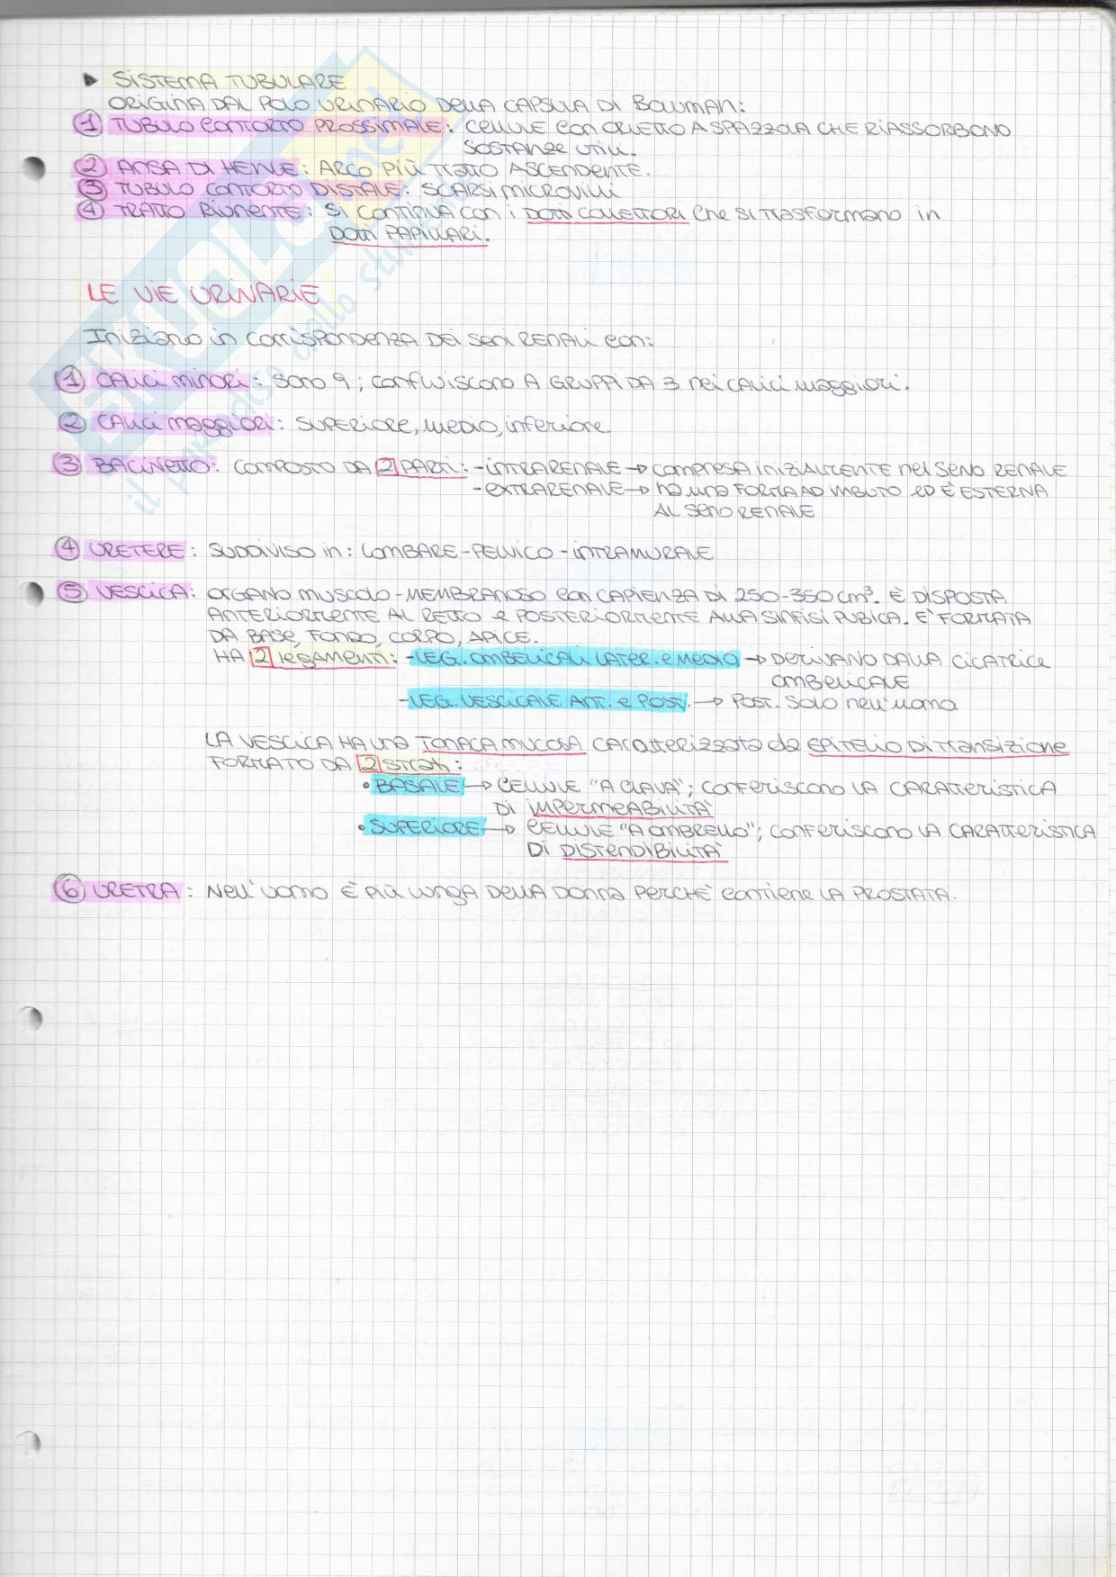 ► SISTEMA TUBULARE
ORIGINA DAL POLO URINARIO DELLA CAPSULA DI BOWMAN:
① TUBULO CONTORTO PROSSIMALE: CELLULE CON ORLETTO A SPAZZOLA CHE RIASSORBONO
SOSTANZE UTILI.
② ANSA DI HENLE: ARCO PIÙ TRATTO ASCENDENTE.
③ TUBULO CONTORTO DISTALE: SCARSI MICROVILLI
④ TRATTO RIUNENTE: SI CONTINUA CON i DOTTI COLLETTORI CHE SI TRASFORMANO IN
DOTTI PAPILLARI.
LE VIE URINARIE
INIZIANO IN CORRISPONDENZA DEI SENI RENALI CON:
① CALICI MINORI: SONO 9; CONFLUISCONO A GRUPPI DA 3 NEI CALICI MAGGIORI.
② CALICI MAGGIORI: SUPERIORE, MEDIO, INFERIORE
③ BACINETTO: COMPOSTO DA 2 PARTI: -INTRARENALE → COMPRESA INIZIALMENTE NEL SENO RENALE
-EXTRARENALE → HA UNA FORMA AD IMBUTO ED È ESTERNA
AL SENO RENALE
④ URETERE: SUDDIVISO IN: LOMBARE-PELVICO-INTRAMURALE
⑤ VESCICA: ORGANO MUSCOLO-MEMBRANOSO CON CAPIENZA DI 250-350 cm³. È DISPOSTA
ANTERIORMENTE AL RETTO E POSTERIORMENTE ALLA SINFISI PUBICA. E' FORMATA
DA BASE, FONDO, CORPO, APICE.
HA 2 LEGAMENTI: -LEG. OMBELICALI LATER. E MEDIO → DERIVANO DALLA CICATRICE
OMBELICALE
-LEG. VESCICALE ANT. E POST. → POST. SOLO NELL'UOMO
LA VESCICA HA UNA TONACA MUCOSA CARATTERIZZATA DA EPITELIO DI TRANSIZIONE
FORMATO DA 2 STRATI:
• BASALE → CELLULE "A CLAVA"; CONFERISCONO LA CARATTERISTICA
DI IMPERMEABILITA'
• SUPERIORE → CELLULE "A OMBRELLO"; CONFERISCONO LA CARATTERISTICA
DI DISTENDIBILITA'
⑥ URETRA: NELL'UOMO È PIÙ LUNGA DELLA DONNA PERCHE' CONTIENE LA PROSTATA.